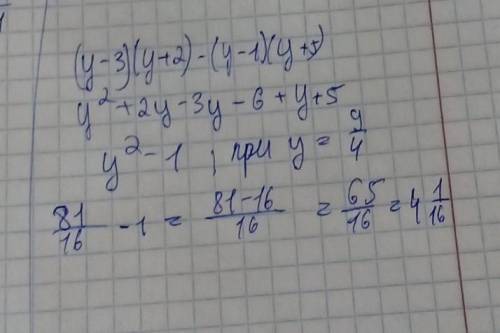 (y-3)(y+2)-(y-1)(y+5)
y²+2y-3y-6+y+5
y²-1 ; при y = 9/4
81/16 -1 = 81-16/16 = 65/16 = 4 1/16